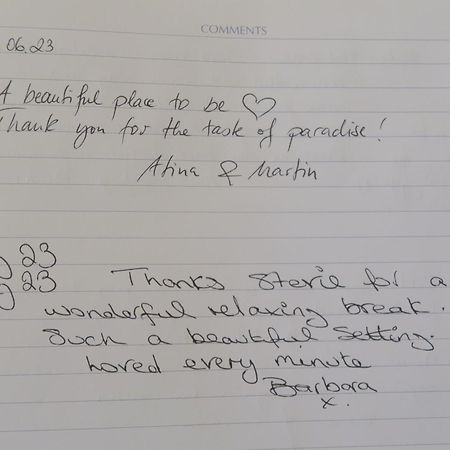 COMMENTS
06.23
A beautiful place to be ♡
Thank you for the task of paradise!
Atina & Martin
23
23 Thanks Stevie for a
wonderful relaxing break.
Such a beautiful setting.
Loved every minute
Barbara
x.